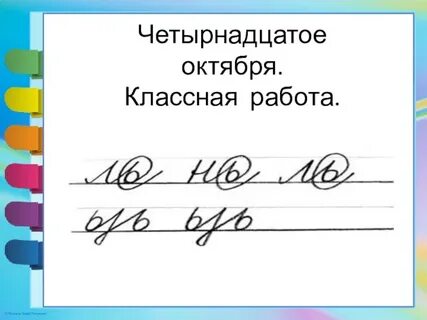 Четырнадцатое
октября.
Классная работа.
ль нь ль
ьзь ьзь